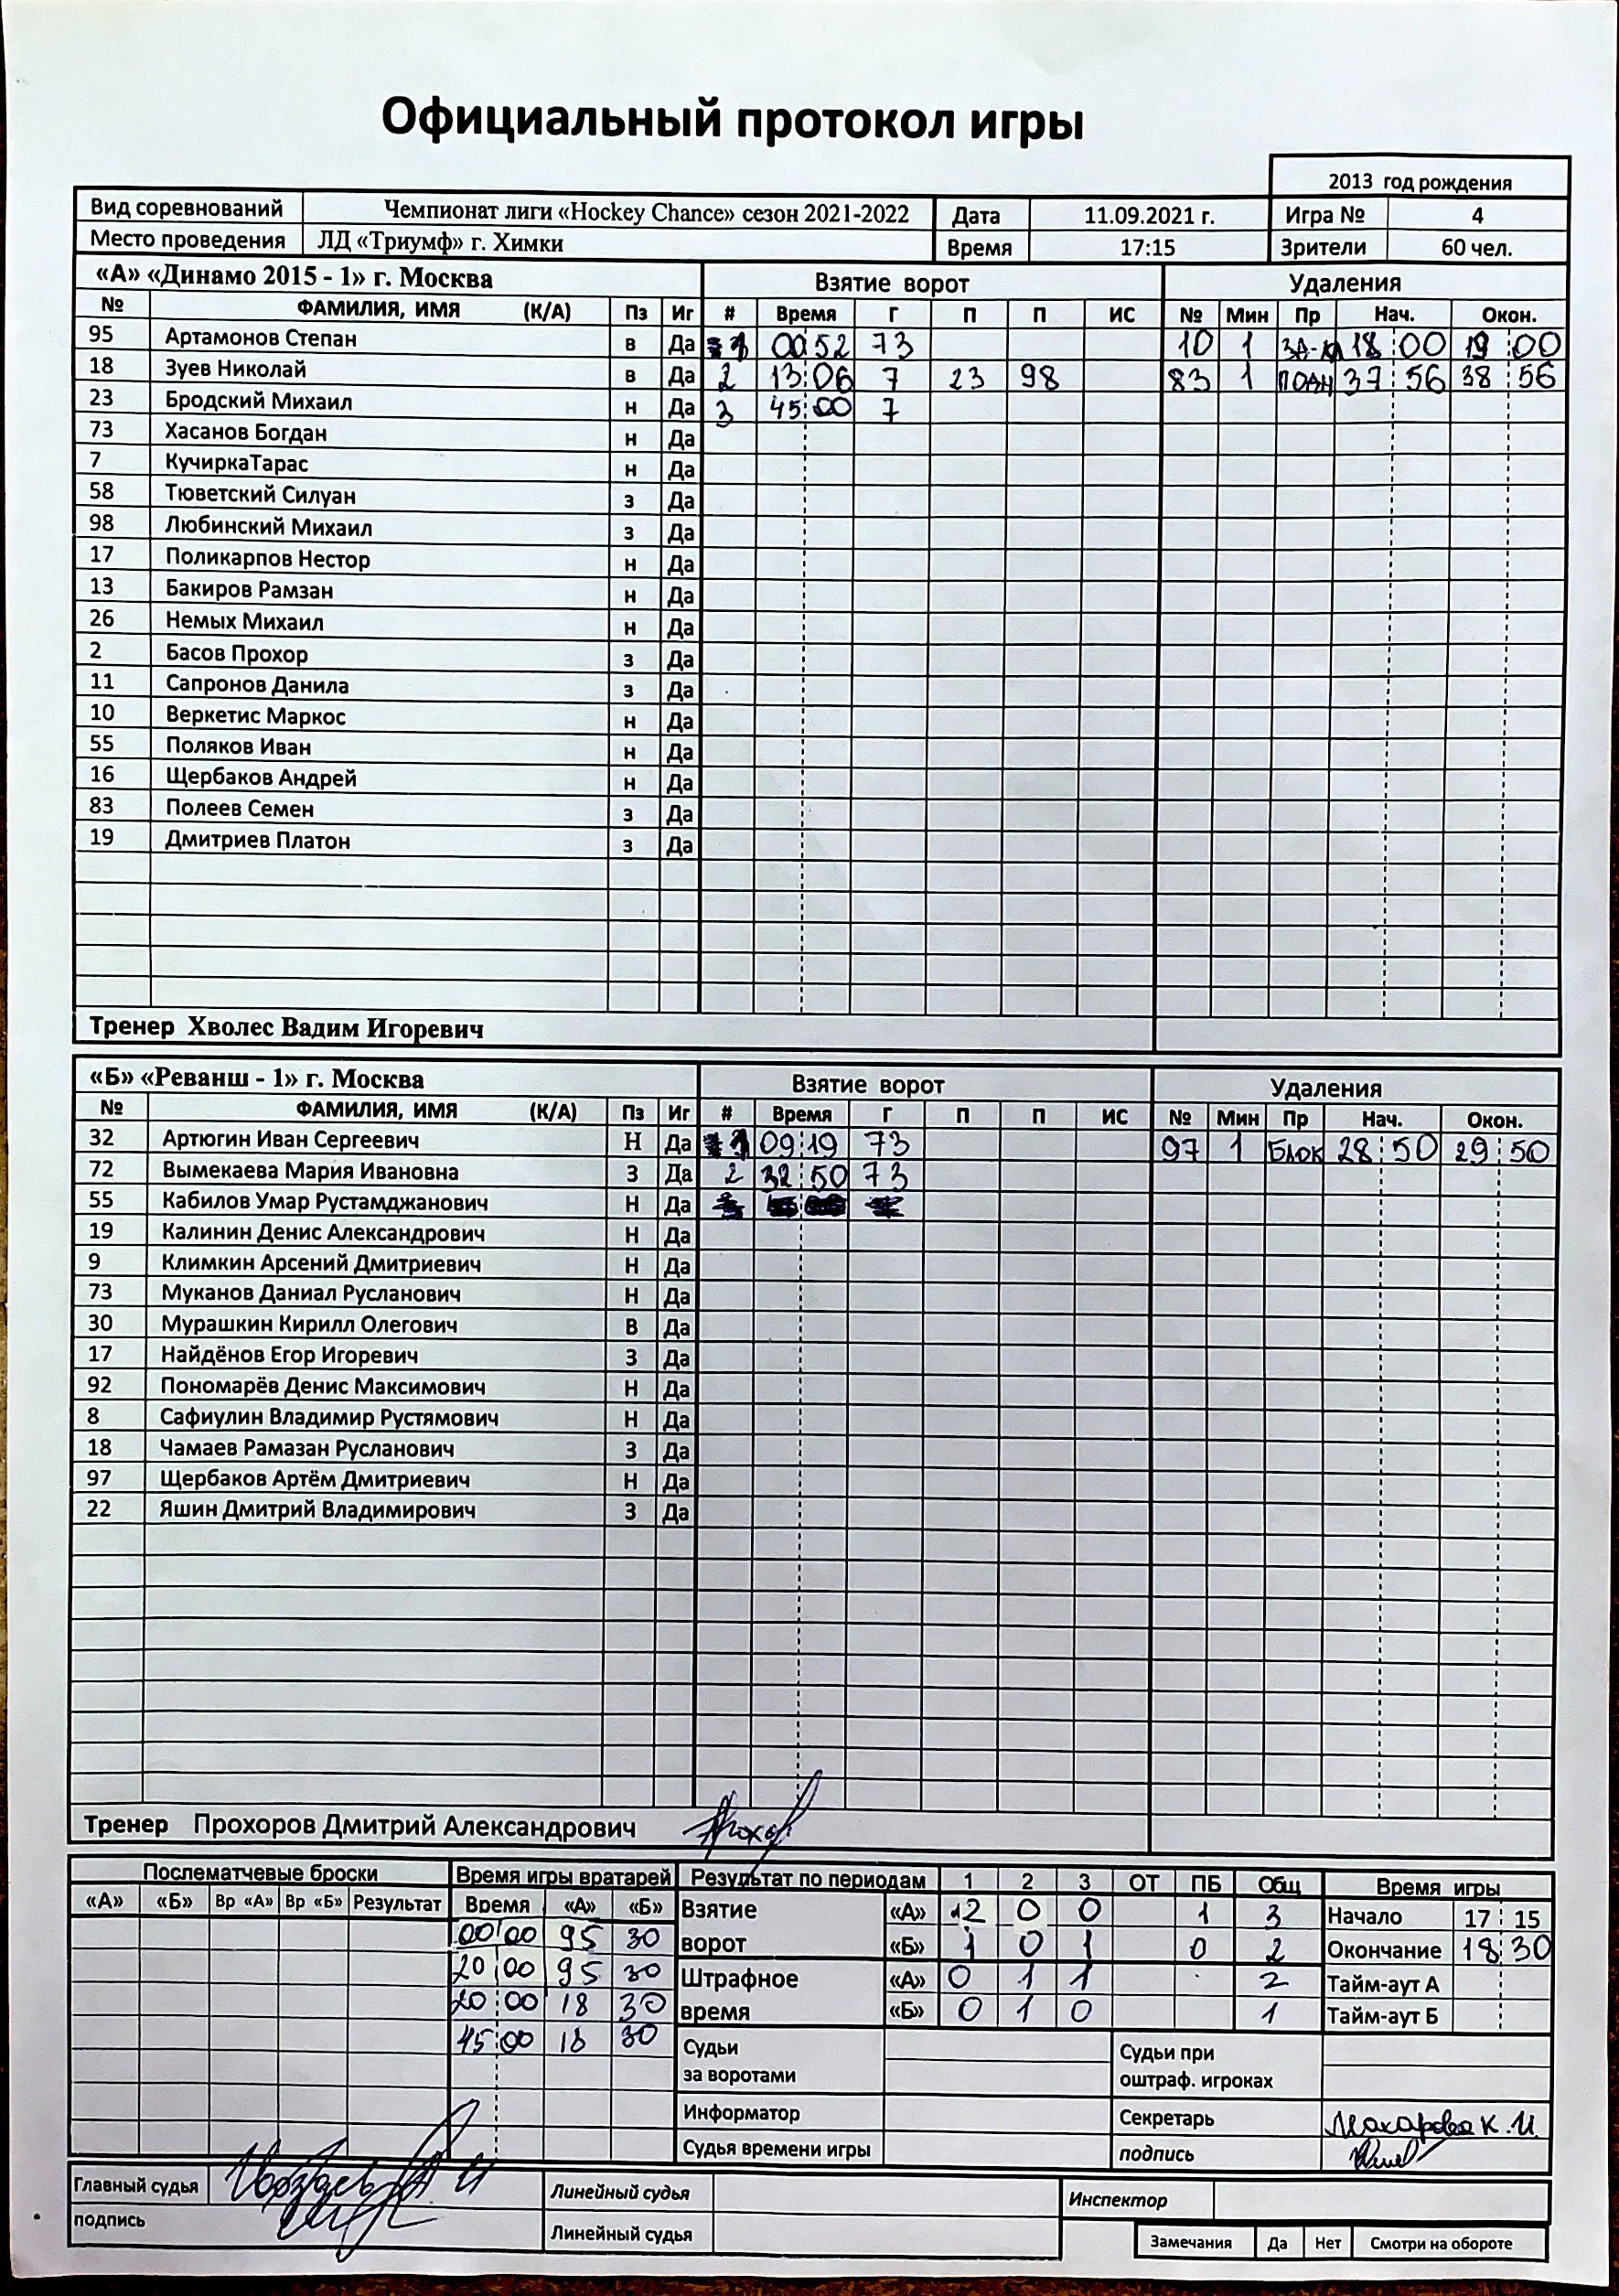 Официальный протокол игры
2013 год рождения
Вид соревнований Чемпионат лиги «Hockey Chance» сезон 2021-2022 Дата 11.09.2021 г. Игра № 4
Место проведения ЛД «Триумф» г. Химки Время 17:15 Зрители 60 чел.
«А» «Динамо 2015 - 1» г. Москва Взятие ворот Удаления
№ ФАМИЛИЯ, ИМЯ (К/А) Пз Иг # Время Г П П ИС № Мин Пр Нач. Окон.
95 Артамонов Степан в Да 1 00:52 73 10 1 18:00 19:00
18 Зуев Николай в Да 2 13:06 7 23 98 83 1 ПОДН 37:56 38:56
23 Бродский Михаил н Да 3 45:00 7
73 Хасанов Богдан н Да
7 КучиркаТарас н Да
58 Тюветский Силуан з Да
98 Любинский Михаил з Да
17 Поликарпов Нестор н Да
13 Бакиров Рамзан н Да
26 Немых Михаил н Да
2 Басов Прохор з Да
11 Сапронов Данила з Да
10 Веркетис Маркос н Да
55 Поляков Иван н Да
16 Щербаков Андрей н Да
83 Полеев Семен з Да
19 Дмитриев Платон з Да
Тренер Хволес Вадим Игоревич
«Б» «Реванш - 1» г. Москва Взятие ворот Удаления
№ ФАМИЛИЯ, ИМЯ (К/А) Пз Иг # Время Г П П ИС № Мин Пр Нач. Окон.
32 Артюгин Иван Сергеевич Н Да 1 09:19 73 97 1 БЛОК 28:50 29:50
72 Вымекаева Мария Ивановна З Да 2 32:50 73
55 Кабилов Умар Рустамджанович Н Да
19 Калинин Денис Александрович Н Да
9 Климкин Арсений Дмитриевич Н Да
73 Муканов Даниал Русланович Н Да
30 Мурашкин Кирилл Олегович В Да
17 Найдёнов Егор Игоревич З Да
92 Пономарёв Денис Максимович Н Да
8 Сафиулин Владимир Рустямович Н Да
18 Чамаев Рамазан Русланович З Да
97 Щербаков Артём Дмитриевич Н Да
22 Яшин Дмитрий Владимирович З Да
Тренер Прохоров Дмитрий Александрович
Послематчевые броски Время игры вратарей Результат по периодам 1 2 3 ОТ ПБ Общ Время игры
«А» «Б» Вр «А» Вр «Б» Результат Время «А» «Б» Взятие «А» 2 0 0 1 3 Начало 17:15
00:00 95 30 ворот «Б» 1 0 1 0 2 Окончание 18:30
20:00 95 30 Штрафное «А» 0 1 1 2 Тайм-аут А
20:00 18 30 время «Б» 0 1 0 1 Тайм-аут Б
45:00 18 30 Судьи за воротами Судьи при оштраф. игроках
Информатор Секретарь Макарова К.И.
Судья времени игры подпись
Главный судья Линейный судья Инспектор
подпись Линейный судья Замечания Да Нет Смотри на обороте